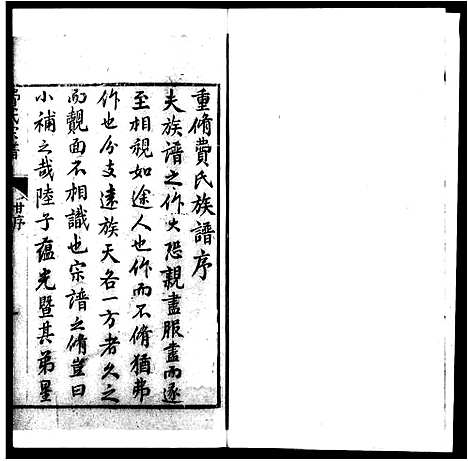 重脩費氏族譜序
夫族譜之作大恐親盡服盡而遂
至相視如途人也作而不脩猶弗
作也分支遠族天各一方者久之
而覿面不相識也宗譜之脩豈曰
小補之哉陸子蘊光暨其弟星
費氏宗譜
序